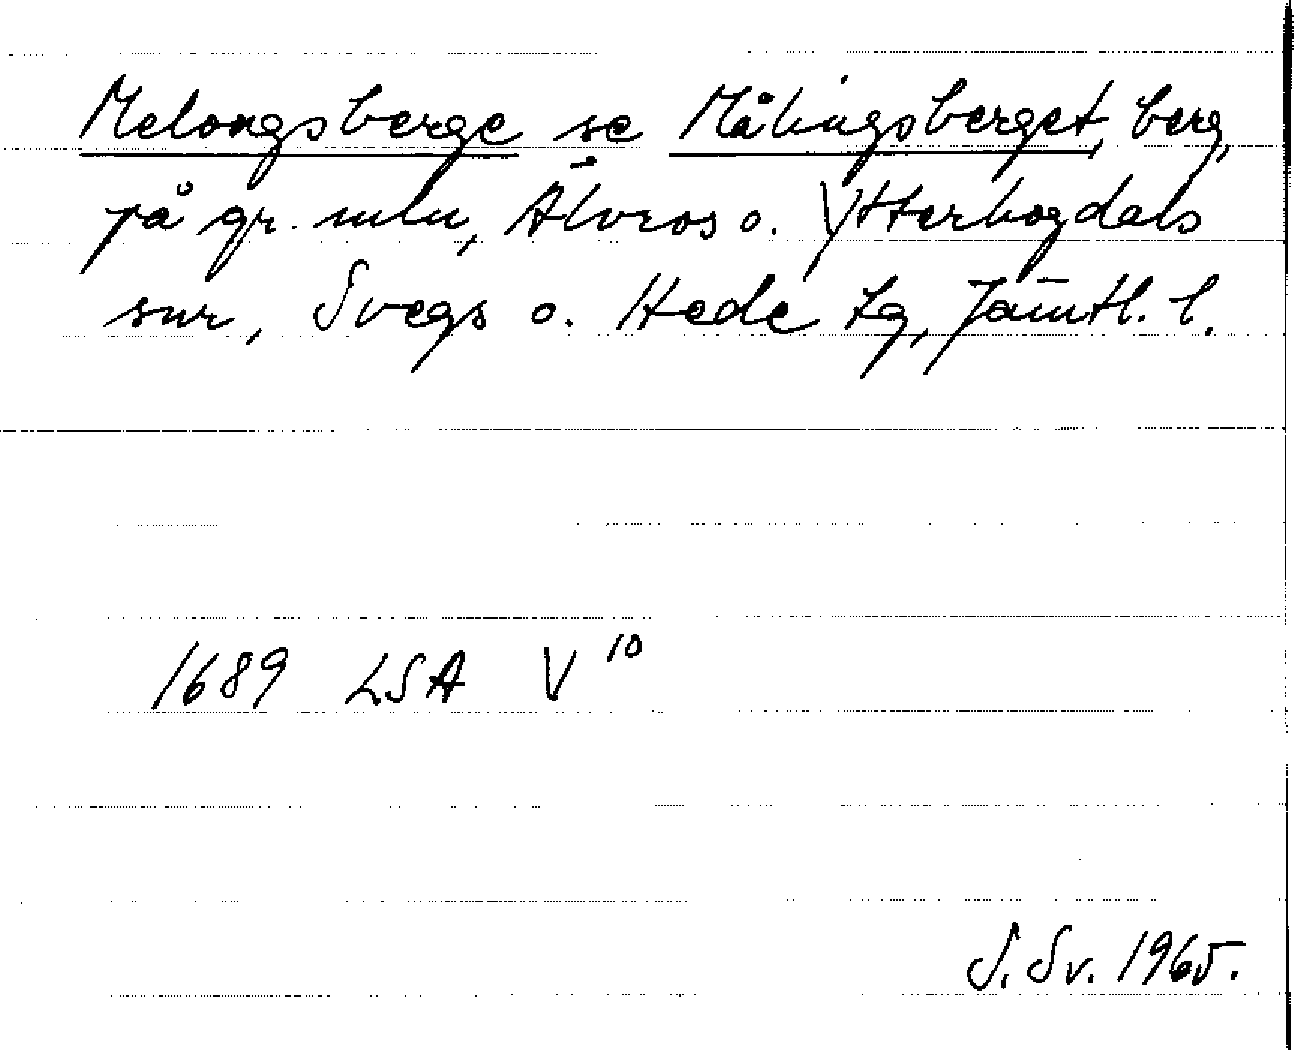 Melongsberge se Målingsberget, berg,
på gr. mln, Älvros o. Ytterhogdals
snr, Svegs o. Hede tg, Jämtl. l.
1689 LSA V 10
S. Sv. 1965.